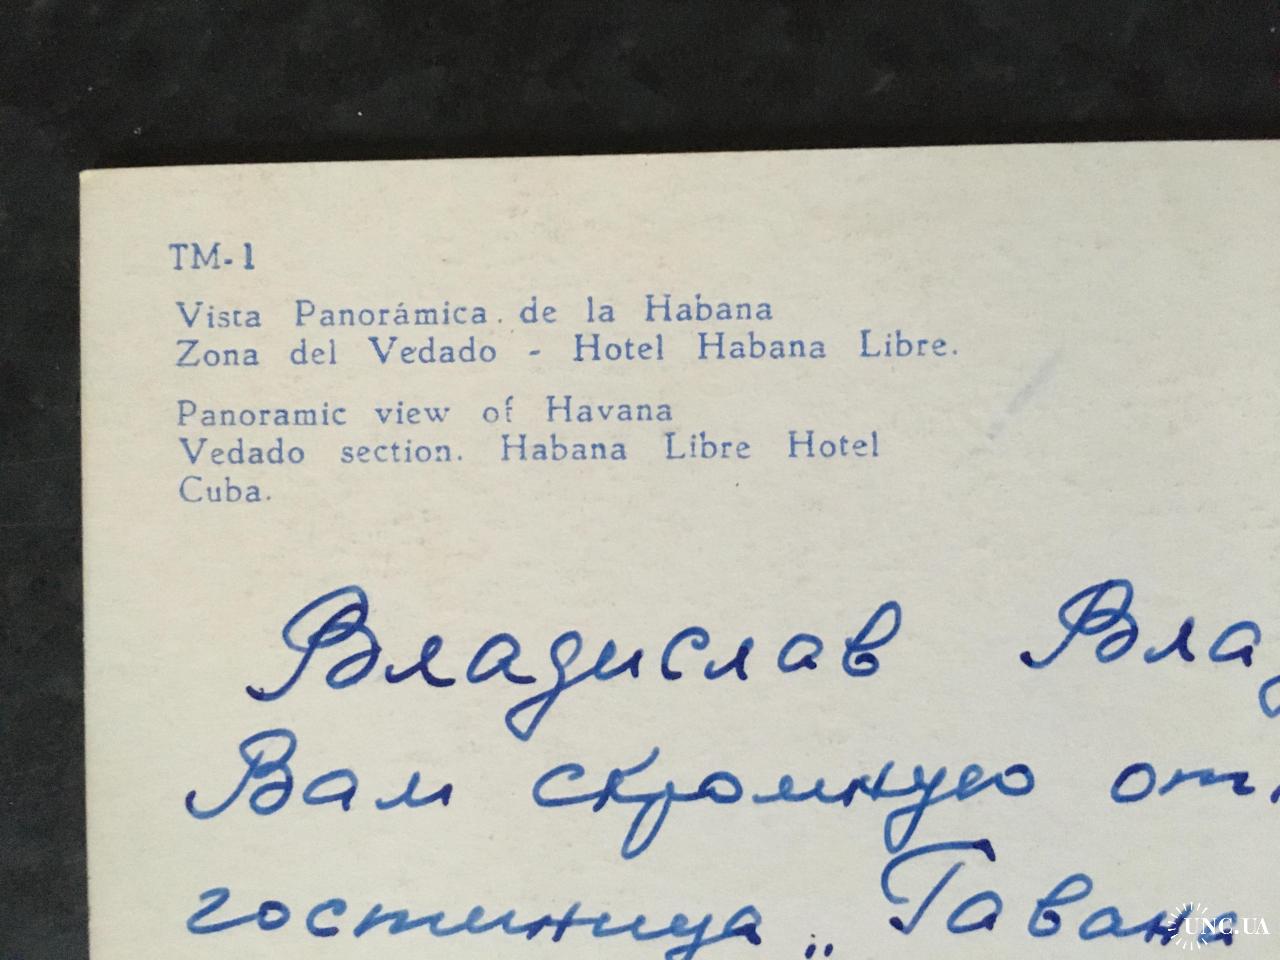 TM-1
Vista Panorámica de la Habana
Zona del Vedado - Hotel Habana Libre.
Panoramic view of Havana
Vedado section. Habana Libre Hotel
Cuba.
Владислав Влад
Вам скромную от
гостиница „Гавана
UNC.UA